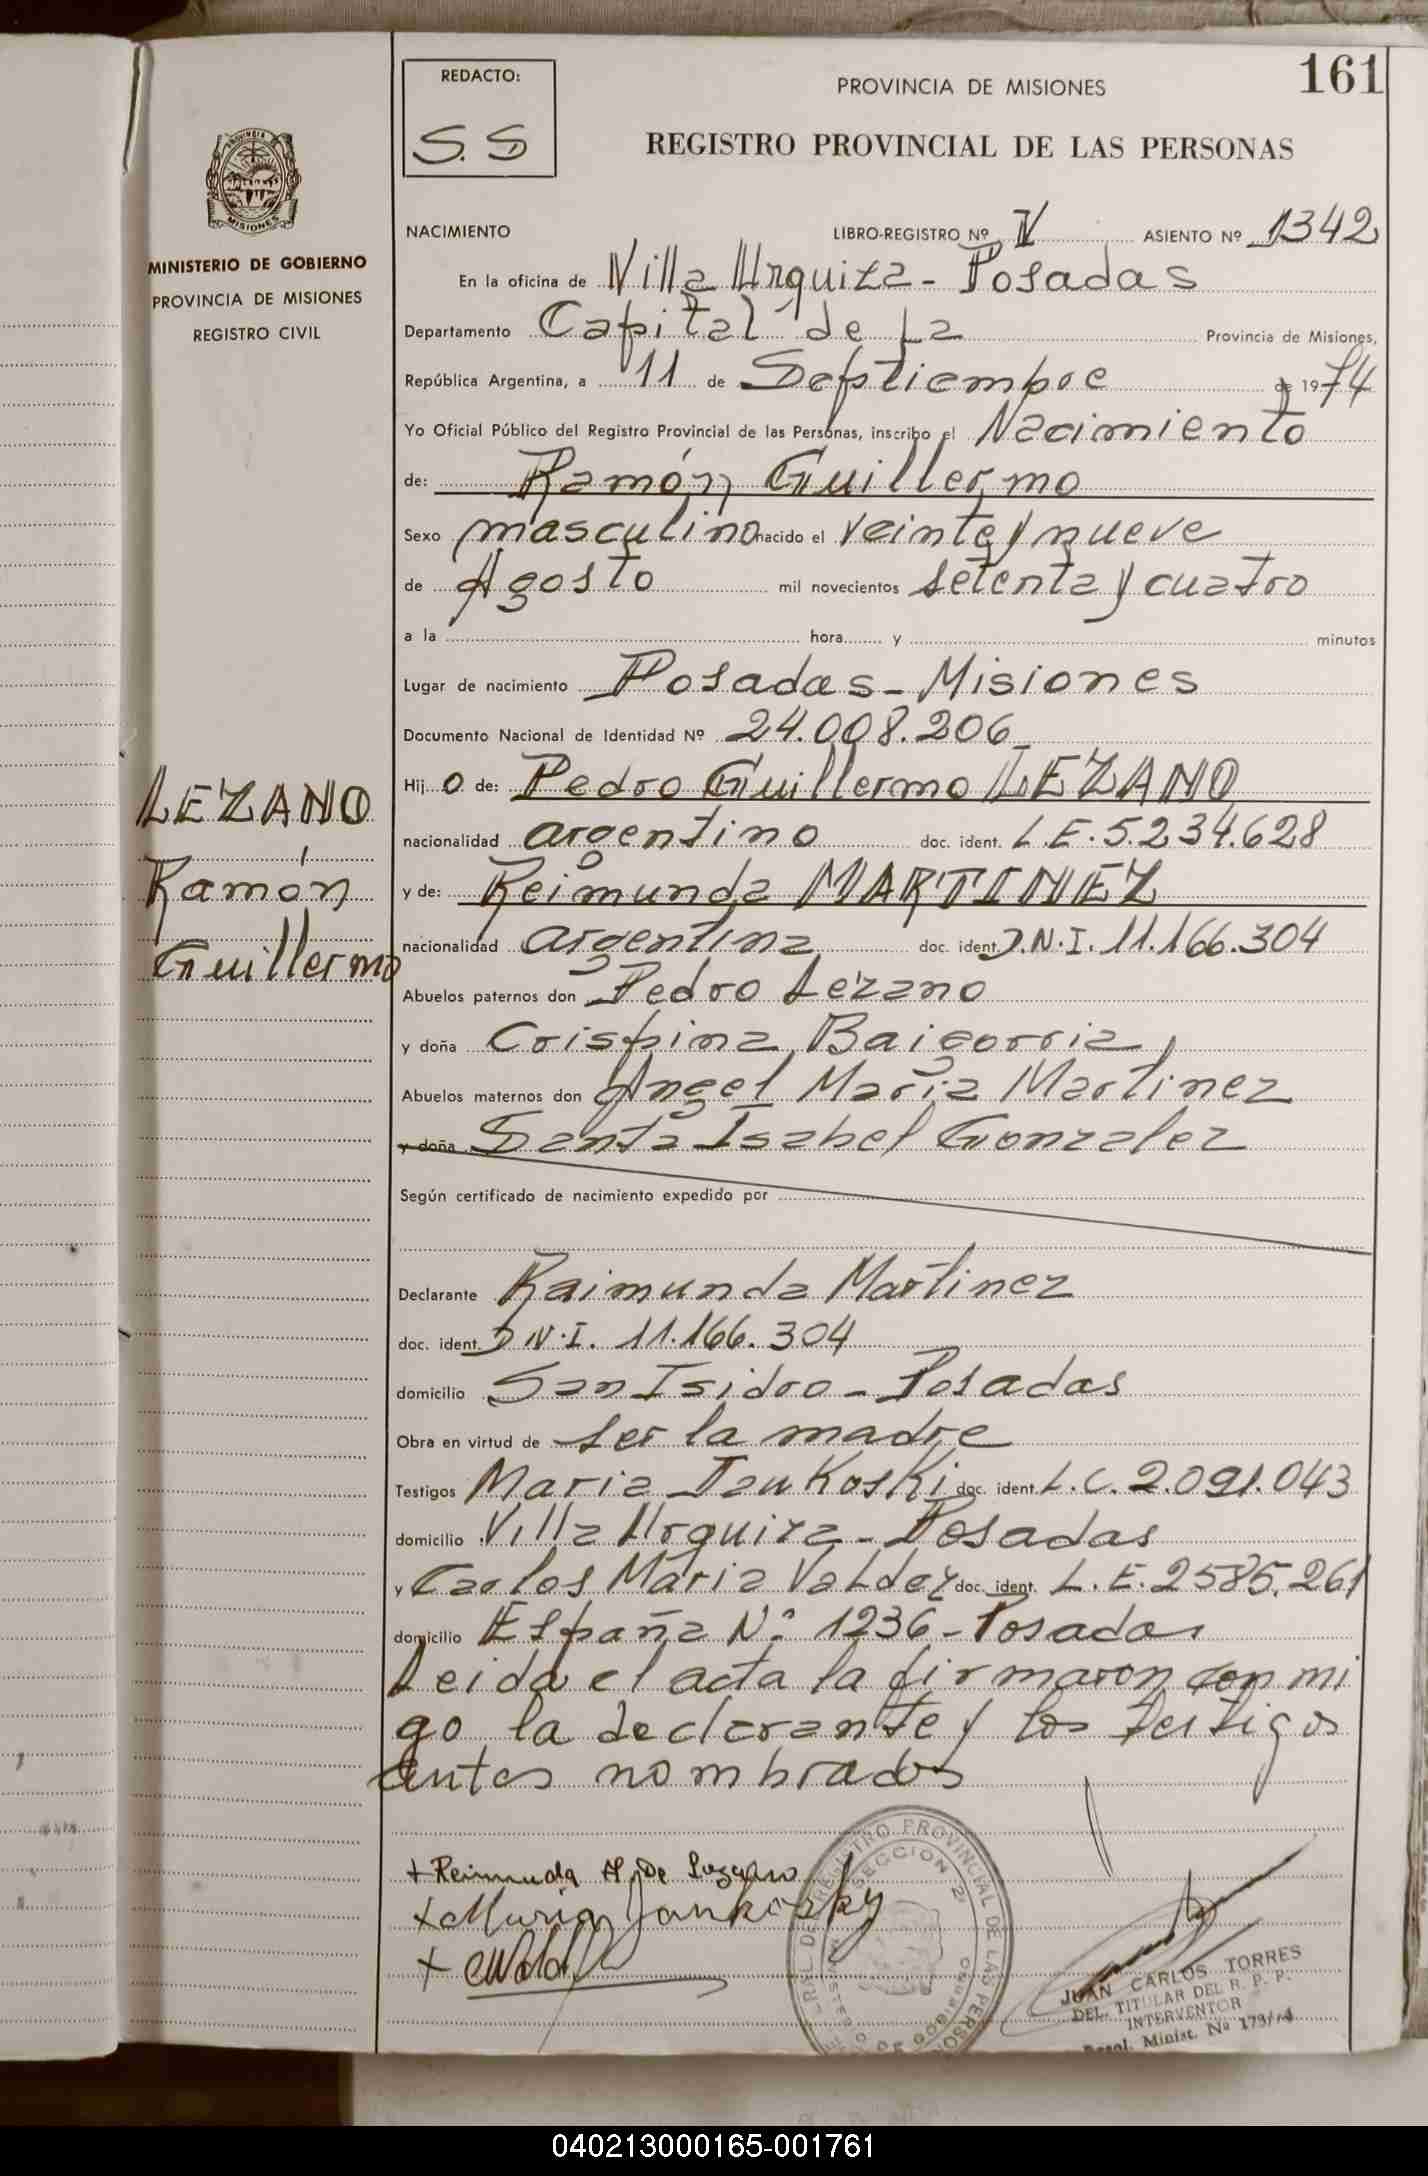 161
REDACTO:
S. S
PROVINCIA DE MISIONES
REGISTRO PROVINCIAL DE LAS PERSONAS
PROVINCIA
MISIONES
MINISTERIO DE GOBIERNO
PROVINCIA DE MISIONES
REGISTRO CIVIL
NACIMIENTO LIBRO-REGISTRO Nº IV ASIENTO Nº 1342
En la oficina de Villa Urquiza - Posadas
Departamento Capital de La Provincia de Misiones,
República Argentina, a 11 de Septiembre de 1974
Yo Oficial Público del Registro Provincial de las Personas, inscribo el Nacimiento
de: Ramón Guillermo
Sexo masculino nacido el veinte y nueve
de Agosto mil novecientos setenta y cuatro
a la hora y minutos
Lugar de nacimiento Posadas - Misiones
Documento Nacional de Identidad Nº 24.008.206
Hij o de: Pedro Guillermo LEZANO
nacionalidad argentino doc. ident. L.E. 5.234.628
y de: Reimunda MARTINEZ
nacionalidad argentina doc. ident. D.N.I. 11.166.304
Abuelos paternos don Pedro Lezano
y doña Crispina Baigorria
Abuelos maternos don Angel Maria Martinez
y doña Santa Isabel Gonzalez
LEZANO
Ramón
Guillermo
Según certificado de nacimiento expedido por
Declarante Raimunda Martinez
doc. ident. D N.I. 11.166.304
domicilio San Isidro - Posadas
Obra en virtud de ser la madre
Testigos Maria Jankoski doc. ident. L.C. 2.091.043
domicilio Villa Urquiza - Posadas
y Carlos Maria Valdez doc. ident. L.E. 2585.261
domicilio España Nº 1236 - Posadas
Leida el acta la firmaron con mi
go la declarante y los testigos
antes nombrados
+ Reimunda M de Lezano
+ Maria Jankosky
JUAN CARLOS TORRES
DEL. TITULAR DEL R. P. P.
INTERVENTOR
Resol. Minist. Nº 179/74
REGISTRO PROVINCIAL DE LAS PERSONAS
SECCION 2
040213000165-001761